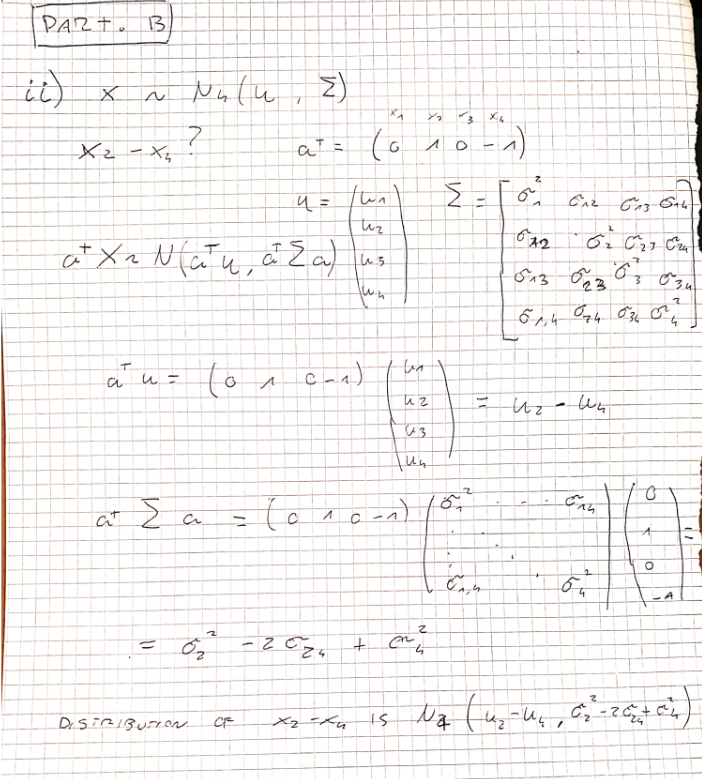 PART. B
ii) X ~ N4 (u, Σ)
x1 x2 x3 x4
X2 - X4 ? aᵀ = (0 1 0 -1)
u = (u1 u2 u3 u4) Σ = [σ1² σ12 σ13 σ14
σ12 σ2² σ23 σ24
aᵀX ~ N(aᵀu, aᵀΣa)
σ13 σ23 σ3² σ34
σ1,4 σ24 σ34 σ4²]
aᵀu = (0 1 0 -1) (u1 u2 u3 u4) = u2 - u4
aᵀ Σ a = (0 1 0 -1) (σ1² . . . σ14 . . . σ1,4 . σ4²) (0 1 0 -1) =
= σ2² - 2σ24 + σ4²
DISTRIBUTION OF x2-x4 IS N (u2-u4, σ2²-2σ24+σ4²)